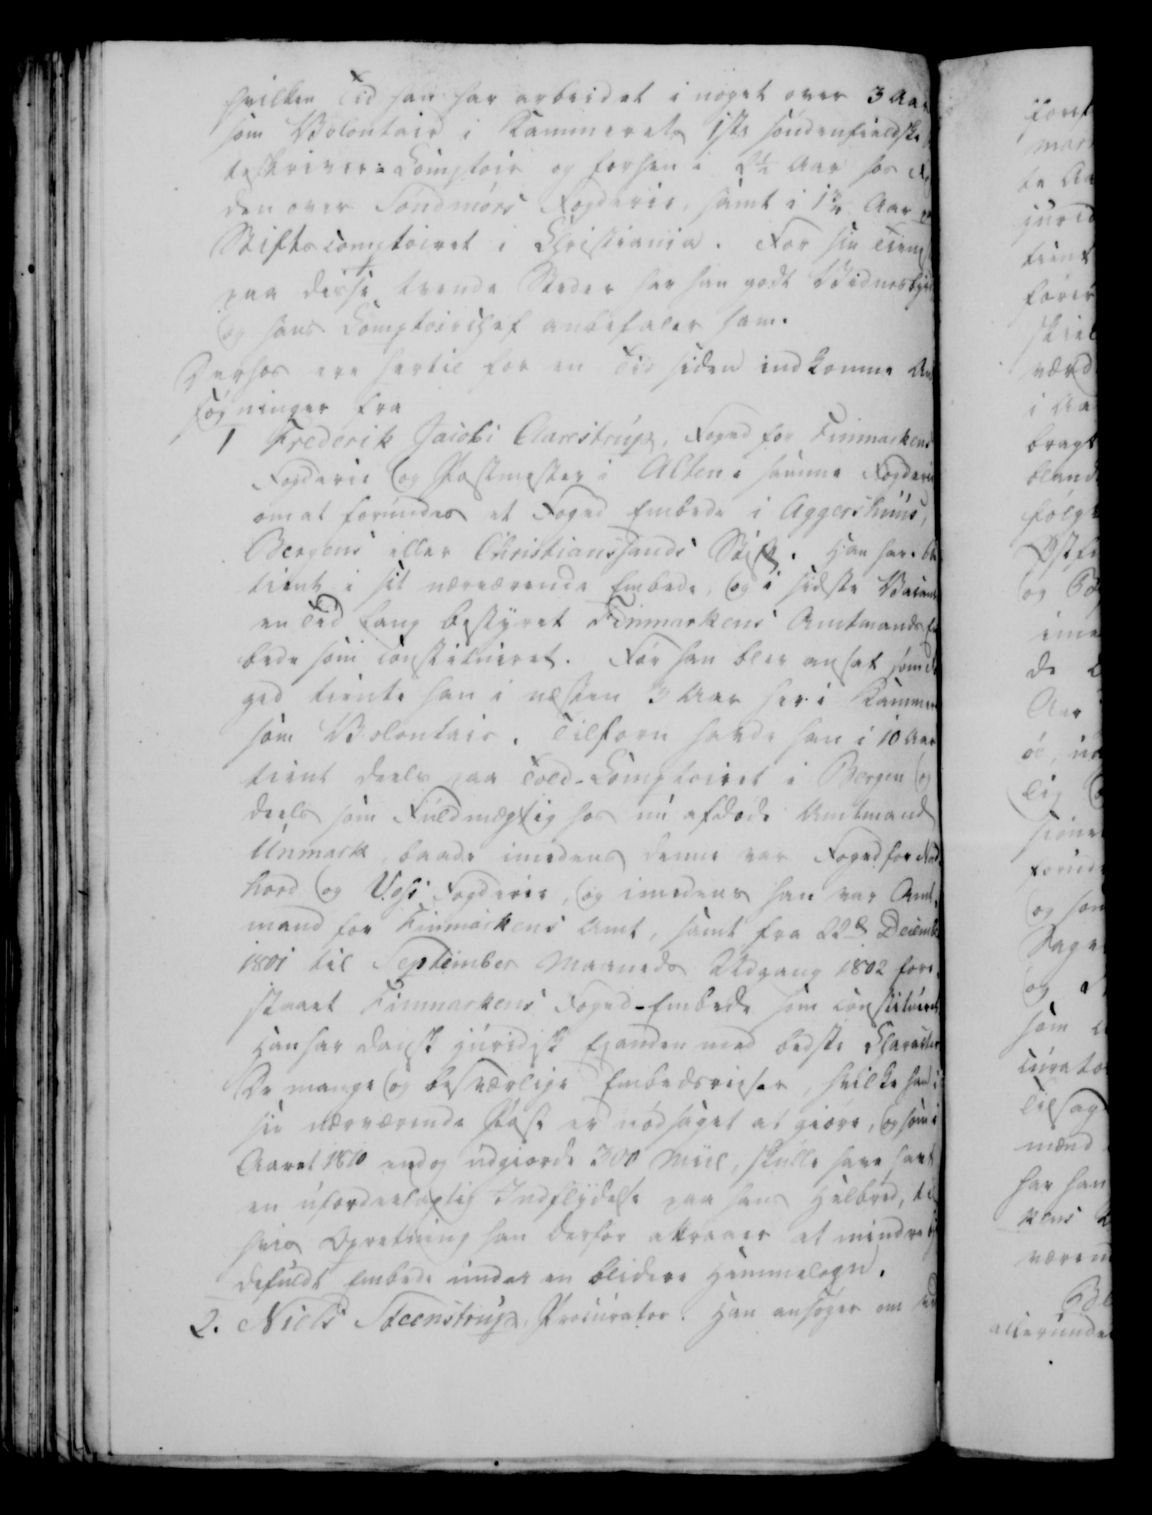 hvilken Tid han har arbeidet i noget over 3 Aar
som Volontair i Kammerets 1ste søndenfieldske
teskriver-Comptoir og forhen i 2½ Aar hos Fo
den over Søndmørs Fogderie, samt i 1½ Aar
Stiftscomptoiret i Christiania. For sin Tieneste
paa disse trende Steder har han godt Vidnesbyrd
og hans Comptoirchef anbefaler ham.
Derhos ere hertil for en Tid siden indkomne An
søgninger fra
1 Frederik Jacobi Aarestrup, Foged for Finmarkens
Fogderie og Postmester i Alten i samme Fogderie
om at forundes et Foged Embede i Aggershuus,
Bergens eller Christianssands Stift. Han har
tient i sit nærværende Embede, og i sidste Vacance
en Tid lang bestyret Finmarkens Amtmands Em
bede som constitueret. Før han blev ansat som Fo
ged tiente han i næsten 3 Aar her i Kammeret
som Volontair. Tilforn havde han i 10 Aar
tient deels paa Told-Comptoiret i Bergen og
deels som Fuldmægtig hos nu afdøde Amtmand
Unmack, baade imedens denne var Foged for Nord
hord og Voss Fogderie, og imedens han var Amt
mand for Finmarkens Amt, samt fra 22de Decembr
1801 til September Maaneds Udgang 1802 fore
staaet Finmarkens Foged-Embede som constitueret
Han har dansk juridisk Examen med bedste Charakter
De mange og besværlige Embedsreiser, hvilke han i
sin nærværende Post er nødsaget at giøre, og som i
Aaret 1810 endog udgiorde 300 Miil, skulle have havt
en ufordeelagtig Indflydelse paa hans Helbred, til
hvis Opretning han derfor attraaer et mindre
defuldt Embede under en blidere Himmelegn.
2. Niels Steenstrup, Procurator. Han ansøger om